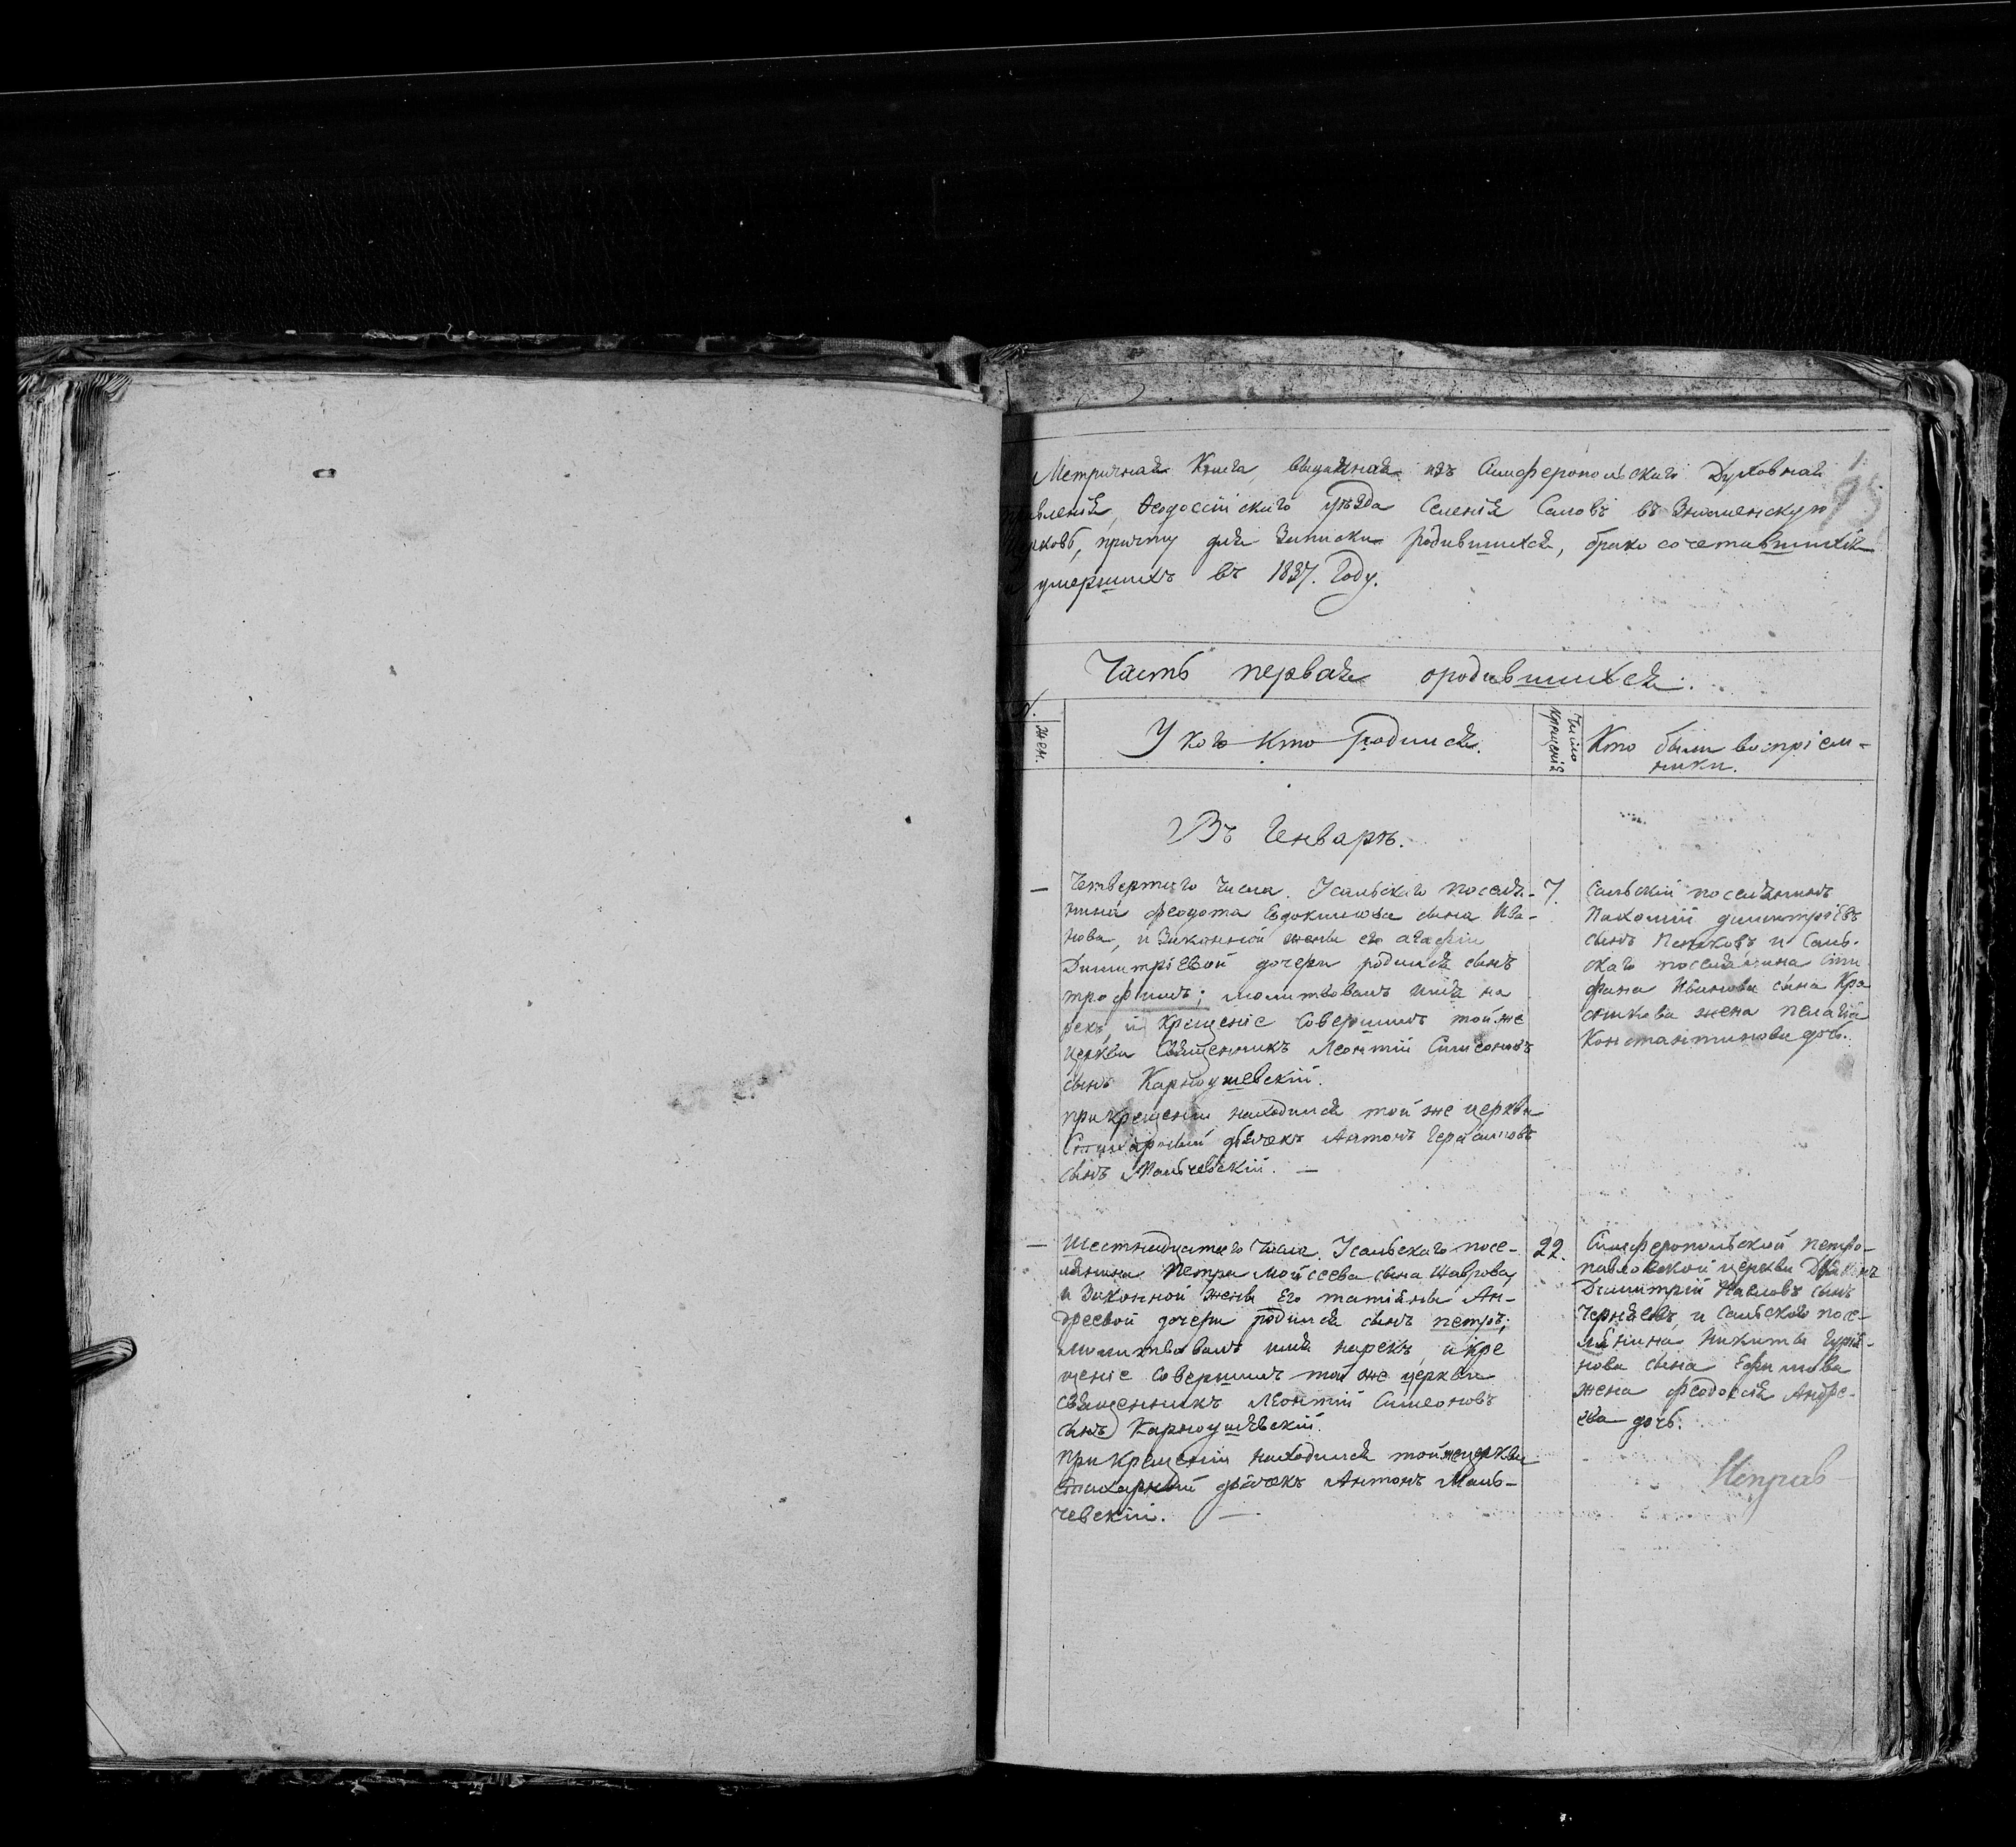 Метричная Книга, выданная изъ Симферопольскаго Духовнаго
вленія, Ѳеодосійскаго уѣзда Селенія Саловъ въ Знаменскую
рковь, причту для записки родившихся, бракосочетавшихся
умершихъ въ 1837. Году.
1.
95
Часть первая о родившихся.
жен.
У кого кто родился.
Число
крещенія
Кто были воспріем-
ники.
Въ Генварѣ.
— Четвертаго числа. Усальскаго поселя-
нина Феодота Евдокимова сына Ива-
нова, и законной жены его агафіи
Димитріевой дочери родился сынъ
трофимъ; молитвовалъ имя на
рекъ, и крещеніе совершилъ той же
церкви Священникъ Леонтій Симеоновъ
сынъ Карноушевскій.
при крещеніи находился той же церкви
Стихарный дьячекъ Антонъ Герасимовъ
сынъ Мальчевскій. —
7.
Сальскій поселянинъ
Пахомій димитріевъ
сынъ и Саль-
скаго поселянина Сте
фана Иванова сына Кра
жена пелагія
Константинова дочь.
— Шестнадцатаго числа. Усальскаго посе-
лянина Петра Мойсеева сына Шаврова,
и Законной жены Его татіяны Ан-
дреевой дочери родился сынъ петръ;
молитвовалъ имя нарекъ, и кре
щеніе совершилъ той же церкви
священникъ Леонтій Симеоновъ
сынъ Карноушевскій.
При крещеніи находился той же церкви
стихарный дьячекъ Антонъ Маль-
чевскій. —
22.
Симферопольской петро-
павловской церкви Дьяконъ
Димитрій Павловъ сынъ
Черняевъ, и Сальскаго посе-
лянина Никиты
нова сына Ефимова
жена Феодосія Андре-
ева дочь.
Неправ